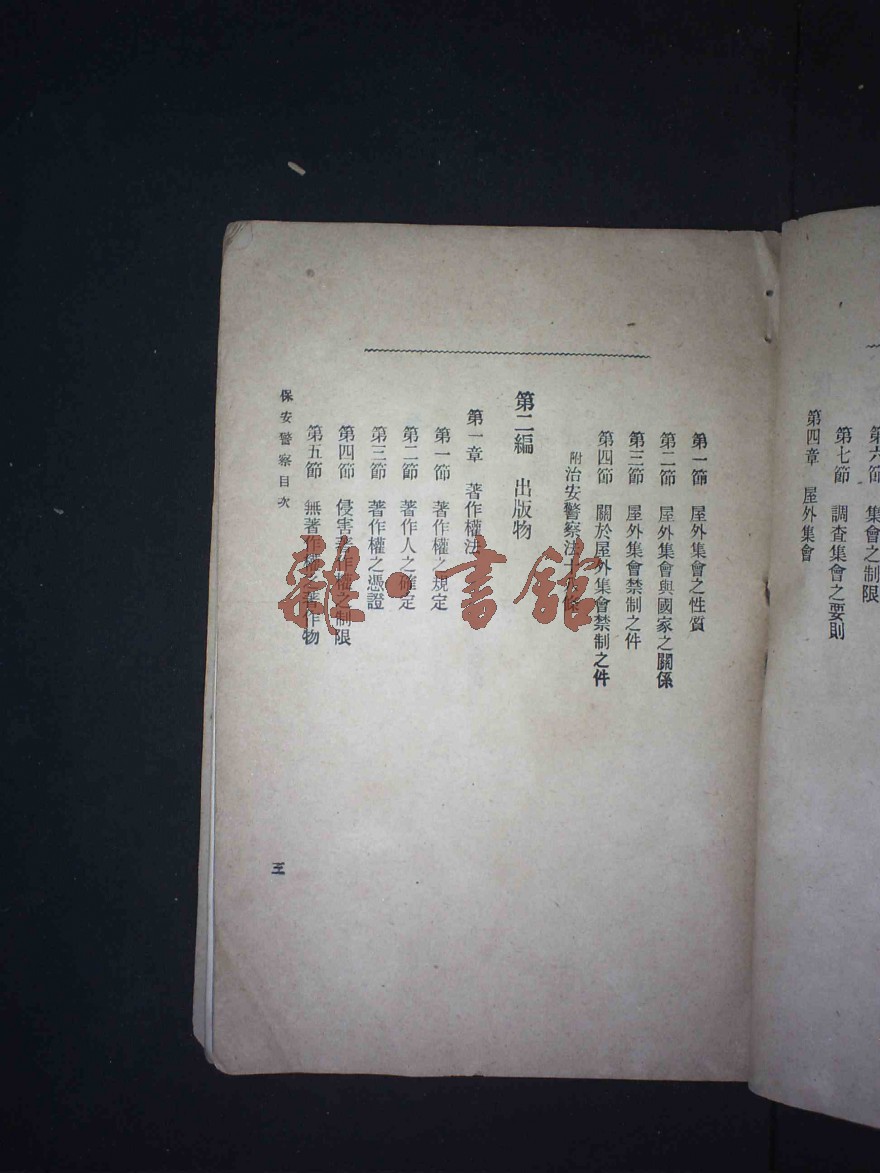 第六節 集會之制限
第七節 調査集會之要則
第四章 屋外集會
第一節 屋外集會之性質
第二節 屋外集會與國家之關係
第三節 屋外集會禁制之件
第四節 關於屋外集會禁制之件
附治安警察法
第二編 出版物
第一章 著作權法
第一節 著作權之規定
第二節 著作人之確定
第三節 著作權之憑證
第四節 侵害著作權之制限
第五節 無著作權之著作物
保安警察目次
三
雜書館